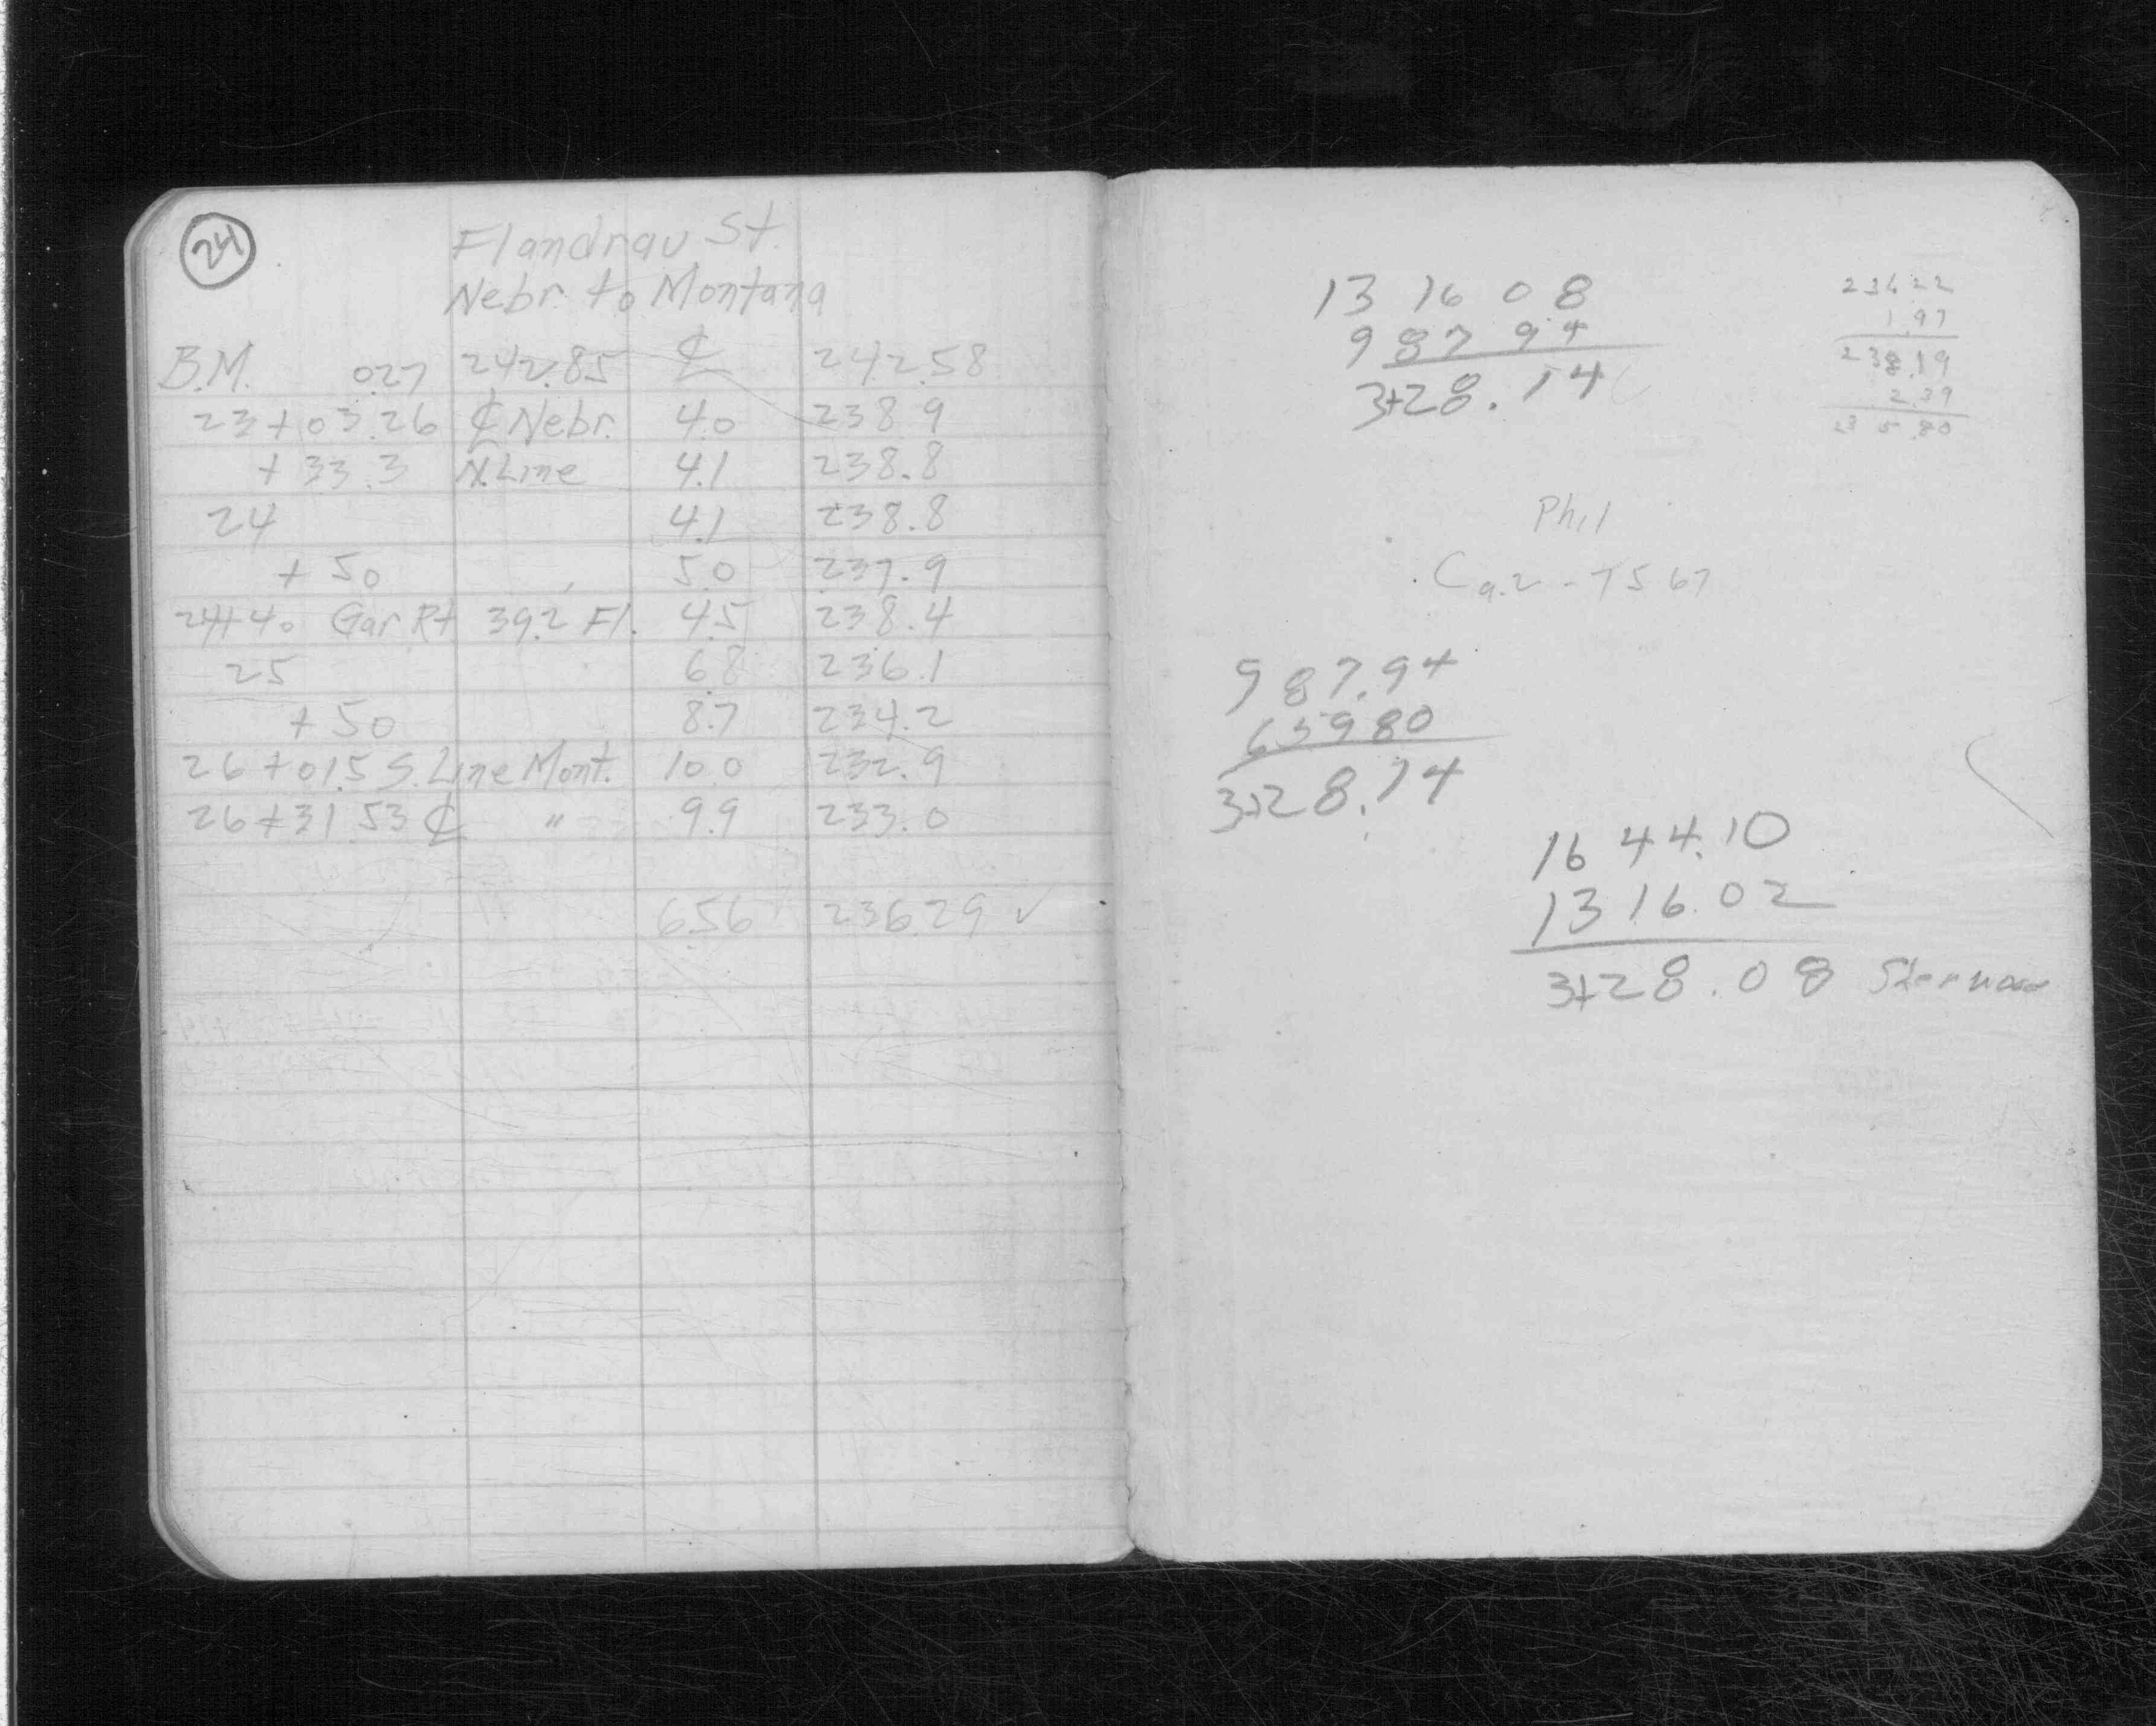 24
Flandrau St.
Nebr. to Montana
B.M. 0.27 242.85 ℄ 242.58
23+03.26 ℄ Nebr. 4.0 238.9
+33.3 N.Line 4.1 238.8
24 4.1 238.8
+50 5.0 237.9
24+40 Gar Rt 39.2 Fl. 4.5 238.4
25 6.8 236.1
+50 8.7 234.2
26+01.5 S.Line Mont. 10.0 232.9
26+31.53 ℄ " 9.9 233.0
6.56 236.29 ✓
13 16 08
9 87 94
3+28.14
236.22
1.97
238.19
2.39
235.80
Phil
Ca.2-7567
987.94
659.80
3+28.14
1644.10
1316.02
3+28.08